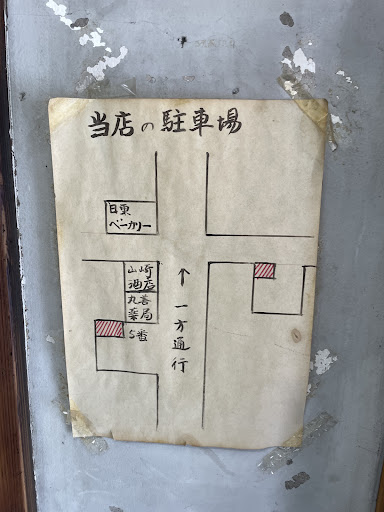 当店の駐車場
日東
ベーカリー
山崎
酒店
丸善
薬局
5番
↑一方通行